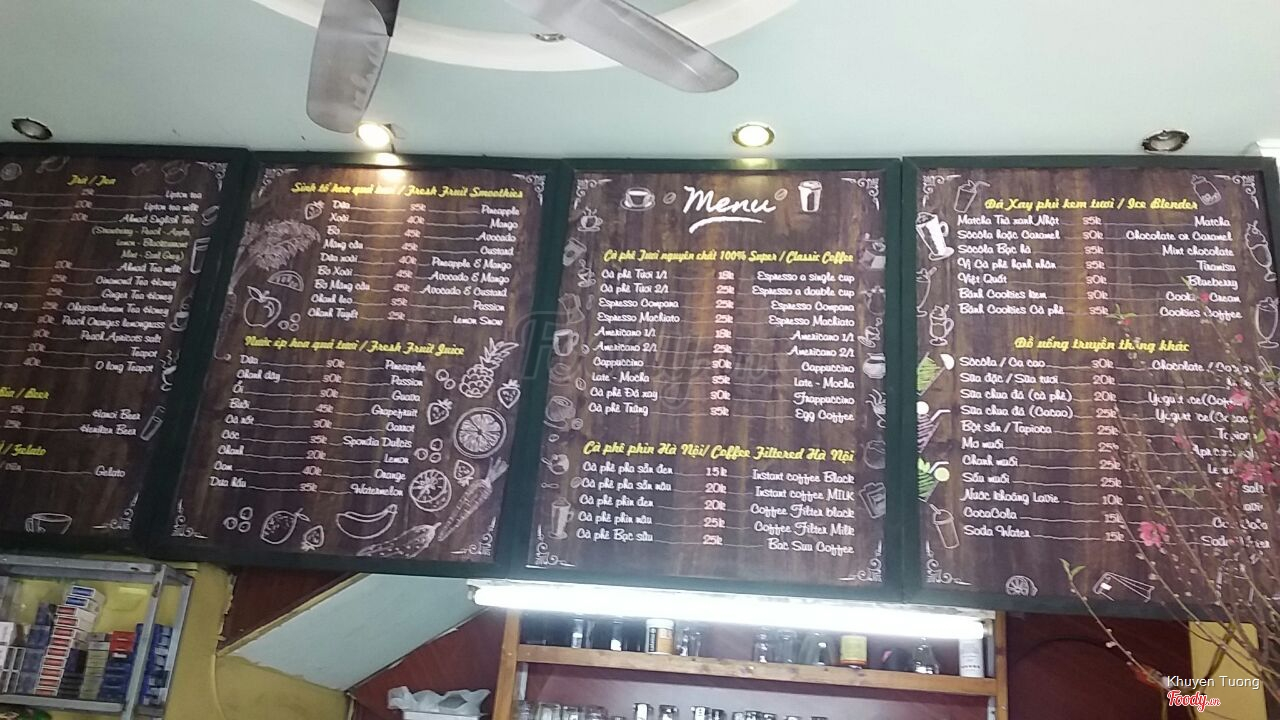 Trà / Tea
25k Lipton tea
30k Lipton tea milk
Ahmad 20k Ahmad English Tea
(Strawberry - Peach - Apple
Lemon - Blackcurrant
Mint - Earl Grey)
Ahmad Tea milk
Cinamond Tea Honey
Ginger Tea Honey
Chrysanthemum Tea Honey
Peach Oranges lemongrass
Peach Apricots salt
Teapot
O long Teapot
Bia / Beer
Hanoi Beer
Heniken Beer
/ Gelato
Gelato
Sinh tố hoa quả tươi / Fresh Fruit Smoothies
Dứa 35k Pineapple
Xoài 40k Mango
Bơ 45k Avocado
Mãng cầu 45k Custard
Dứa xoài 40k Pineapple & Mango
Bơ Xoài 45k Avocado & Mango
Bơ Mãng cầu 45k Avocado & Custard
Chanh leo 35k Passion
Chanh Tuyết 25k Lemon Snow
Nước ép hoa quả tươi / Fresh Fruit Juice
Dứa 30k Pineapple
Chanh dây 30k Passion
Ổi Guava
Bưởi 45k Grapefruit
Cà rốt 30k Carrot
Cóc 35k Spondia Dulcis
Chanh 20k Lemon
Cam 40k Orange
Dưa hấu 35k Watermelon
Menu
Cà phê Tươi nguyên chất 100% Super / Classic Coffee
Cà phê Tươi 1/1 18k Espresso a single cup
Cà phê Tươi 2/1 25k Espresso a double cup
Espresso Conpana 25k Espresso Conpana
Espresso Machiato 25k Espresso Machiato
Americano 1/1 18k Americano 1/1
Americano 2/1 25k Americano 2/1
Cappuccino 30k Cappuccino
Late - Mocha 35k Late - Mocha
Cà phê Đá xay 30k Frappuccino
Cà phê Trứng 35k Egg Coffee
Cà phê phin Hà Nội / Coffee Filtered Hà Nội
Cà phê pha sẵn đen 15k Instant coffee Black
Cà phê pha sẵn nâu 20k Instant coffee MILK
Cà phê phin đen 20k Coffee Filter black
Cà phê phin nâu 25k Coffee Filter Milk
Cà phê Bạc sửu 25k Bac Suu Coffee
Đá Xay phủ kem tươi / Ice Blender
Matcha Trà xanh Nhật 30k Matcha
Sôcôla hoặc Caramel 30k Chocolate or Caramel
Sôcôla Bạc hà 35k Mint chocolate
Vị Cà phê hạnh nhân 35k Tiramisu
Việt Quất 30k Blueberry
Bánh Cookies kem 30k Cookies Cream
Bánh Cookies Cà phê 35k Cookies Coffee
Đồ uống truyền thống khác
Sôcôla / Ca cao 30k Chocolate /
Sữa đặc / Sữa tươi 20k
Sữa chua đá (cà phê) 20k
Sữa chua đá (Cacao) 25k
Bột sắn / Tapioca 25k
Mơ muối 25k
Chanh muối 25k
Sấu muối 25k
Nước khoáng Lavie 10k
CocaCola 15k
Soda Water 15k
Foody.vn
Khuyen Tuong
Foody.vn